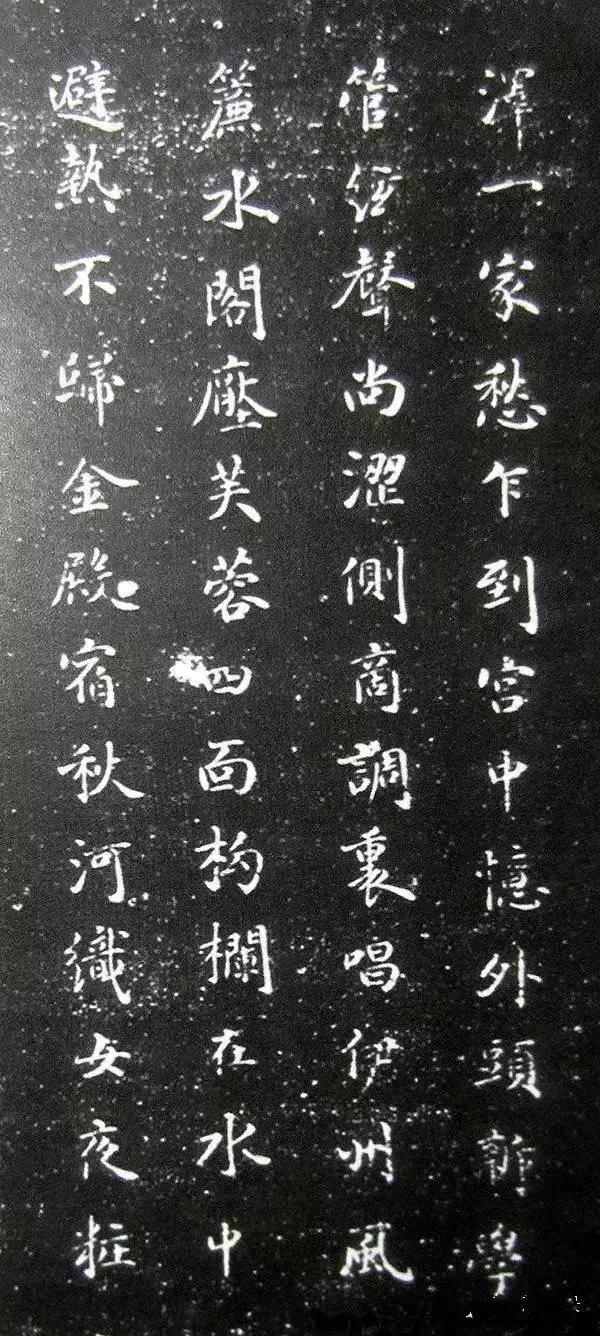 澤一家愁乍到宮中憶外頭新學
管絃聲尚澀側商調裏唱伊州風
簾水閣壓芙蓉四面构欄在水中
避熱不歸金殿宿秋河織女夜粧